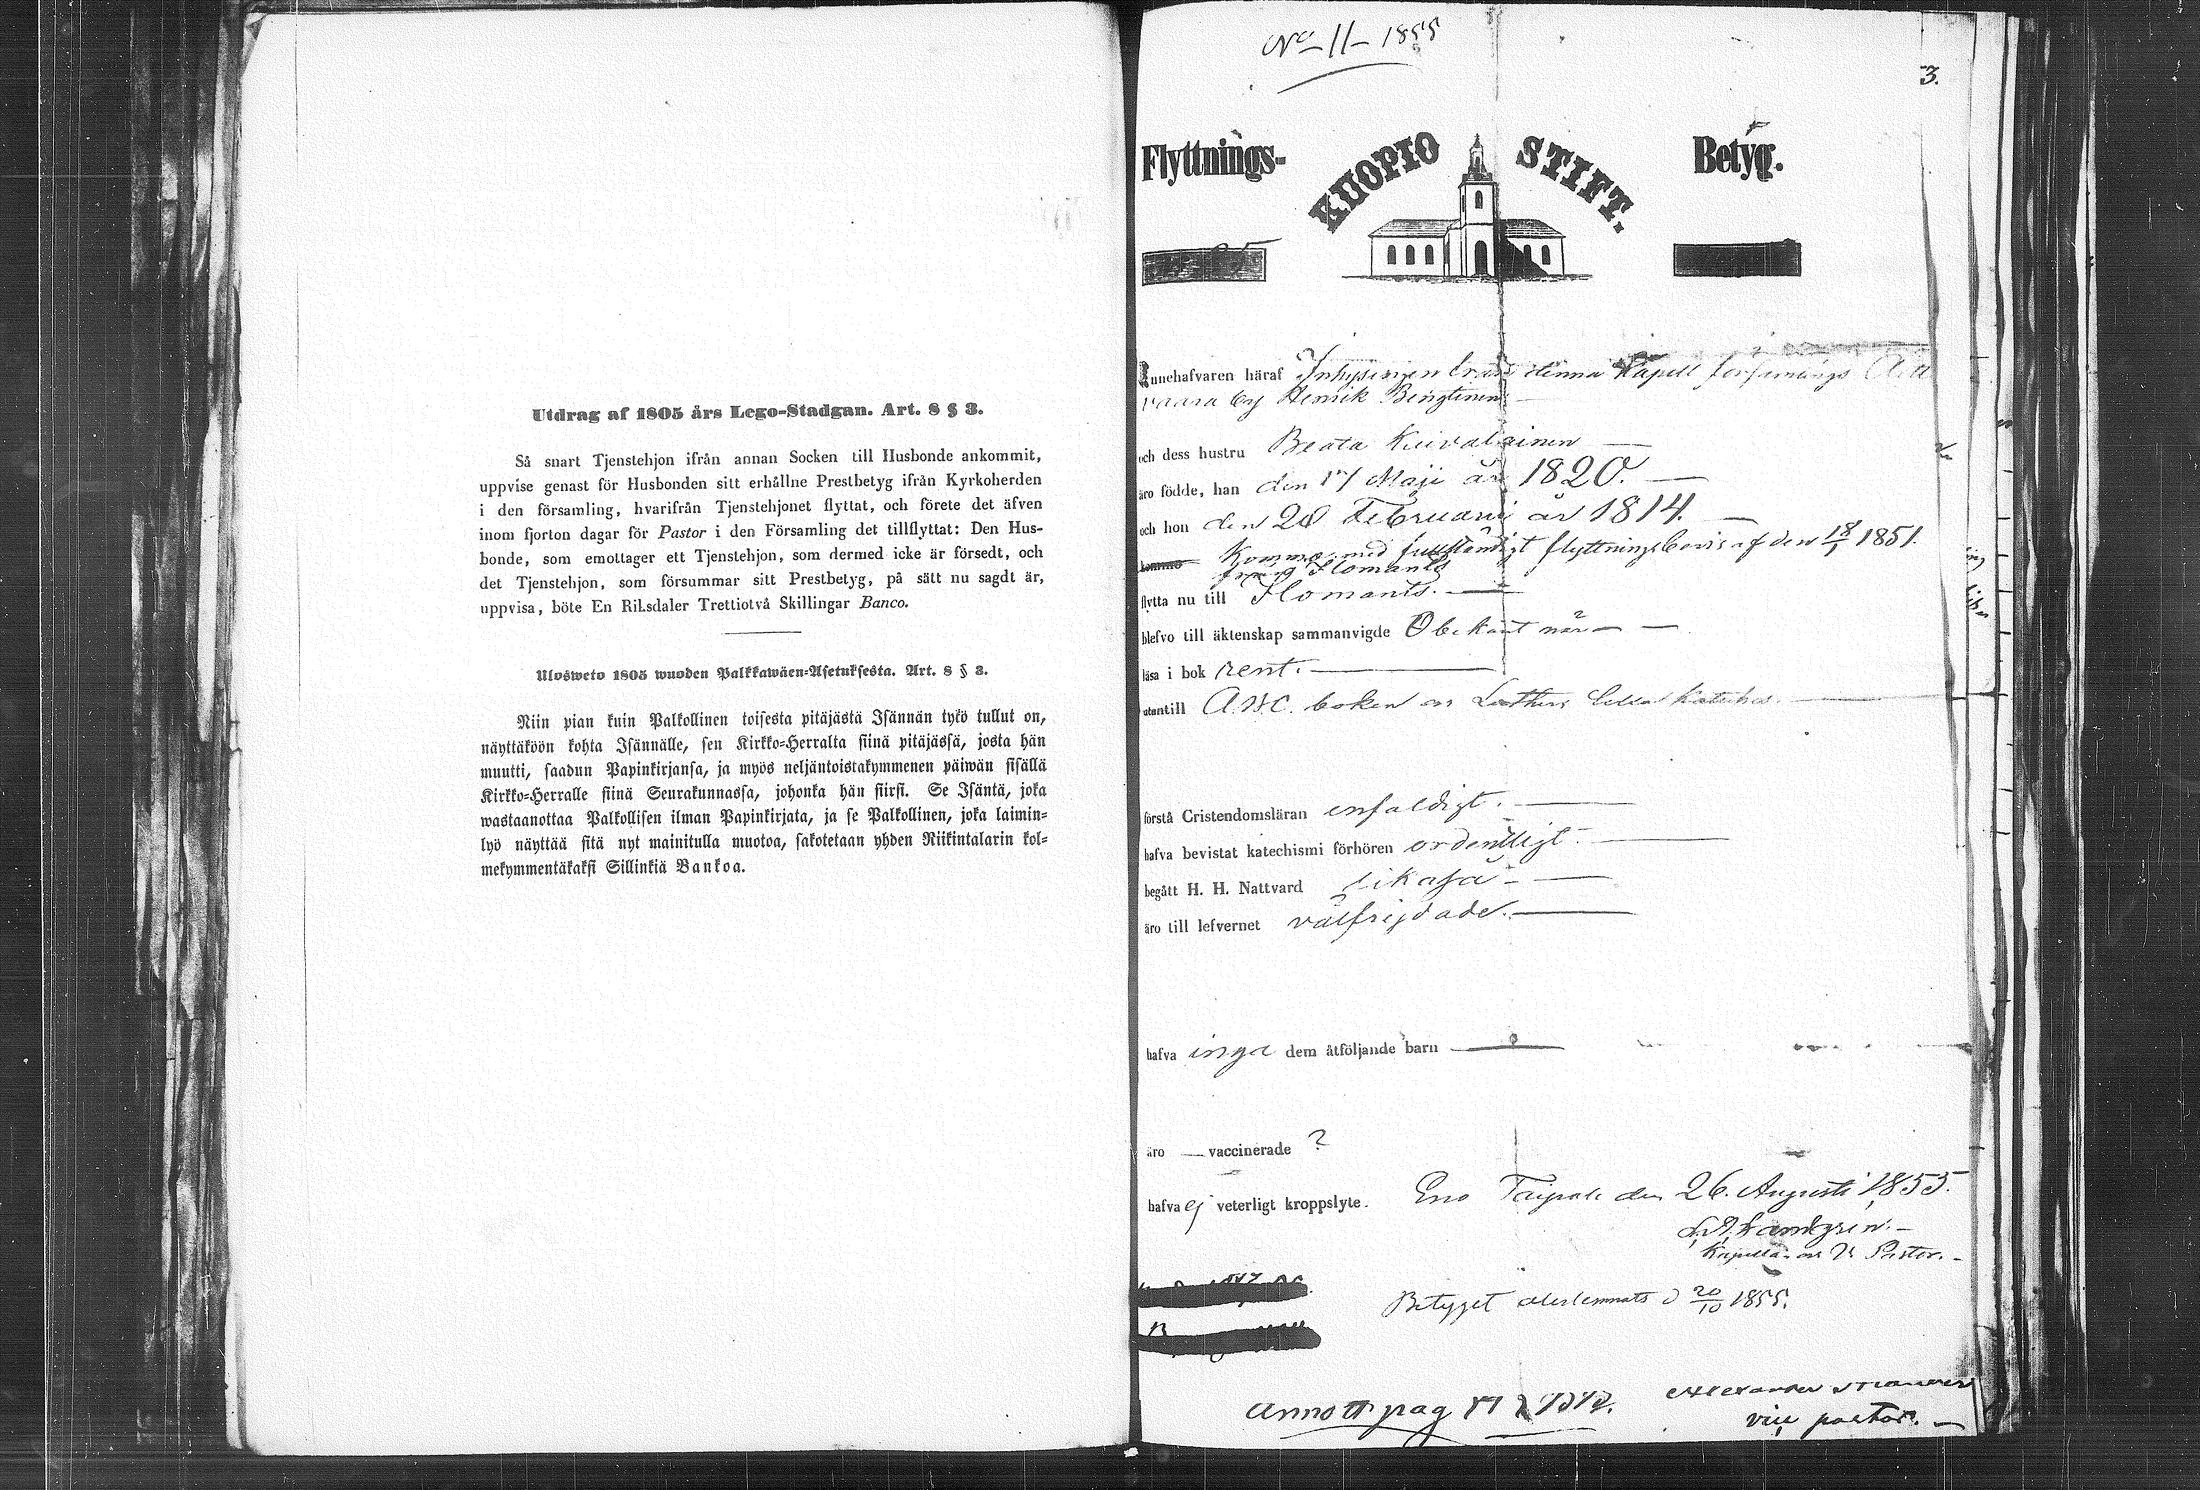 Utdrag af 1805 års Lego-Stadgan. Art. 8 § 3.
Så snart Tjenstehjon ifrån annan Socken till Husbonde ankommit,
uppvise genast för Husbonden sitt erhållne Prestbetyg ifrån Kyrkoherden
i den församling, hvarifrån Tjenstehjonet flyttat, och förete det äfven
inom fjorton dagar för Pastor i den Församling det tillflyttat: Den Hus-
bonde, som emottager ett Tjenstehjon, som dermed icke är försedt, och
det Tjenstehjon, som försummar sitt Prestbetyg, på sätt nu sagdt är,
uppvisa, böte En Riksdaler Trettiotvå Skillingar Banco.
Ulosweto 1805 wuoden Palkkawäen-Asetuksesta. Art. 8 § 3.
Niin pian kuin Palkollinen toisesta pitäjästä Isännän tykö tullut on,
näyttäköön kohta Isännälle, sen Kirkko-Herralta siinä pitäjässä, josta hän
muutti, saadun Papinkirjansa, ja myös neljäntoistakymmenen päiwän sisällä
Kirkko-Herralle siinä Seurakunnassa, johonka hän siirsi. Se Isäntä, joka
wastaanottaa Palkollisen ilman Papinkirjata, ja se Palkollinen, joka laimin-
lyö näyttää sitä nyt mainitulla muotoa, sakotetaan yhden Riikintalarin kol-
mekymmentäkaksi Sillinkiä Bankoa.
No 11 1855
3.
Flyttnings- KUOPIO STIFT. Betyg.
Innehafvaren häraf Inhysingen från denna Kapell församlings
vaara by Henrik Bengtinen
och dess hustru Beata Kuivalainen
äro födde, han den 17 Maji år 1820.
och hon den 20 Februari år 1814.
kommo Komma med fullständigt flyttningsbevis af den 18/1 1851.
från Ilomants
flytta nu till Ilomants.
blefvo till äktenskap sammanvigde Obekant när
läsa i bok rent.
utantill A.B.C. boken och Luthers lilla Kateches.
förstå Cristendomsläran enfaldigt.
hafva bevistat katechismi förhören ordentligt.
begått H. H. Nattvard likaså
äro till lefvernet välfrejdade.
hafva inga dem åtföljande barn
äro vaccinerade ?
hafva ej veterligt kroppslyte. Eno Taipale den 26. Augusti 1855.
Kapellan och V. Pastor.
Betyget aflemnats d 20/10 1855.
Annott pag
Alexander
vice pastor.